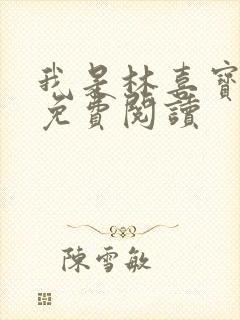 我是林喜寶
免費閱讀
陳雪敏